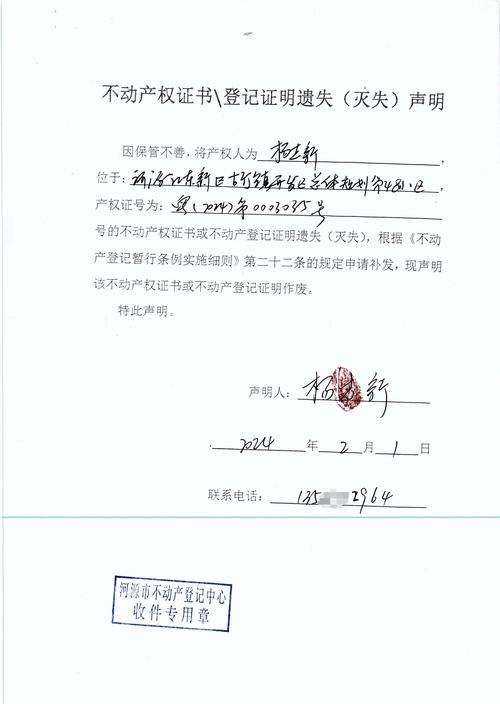 不动产权证书\登记证明遗失（灭失）声明
因保管不善，将产权人为 杨建新，
位于：河源江东新区古竹镇开发区总体规划第481区
产权证号为：粤(2024)第0003035号
号的不动产权证书或不动产登记证明遗失（灭失），根据《不动
产登记暂行条例实施细则》第二十二条的规定申请补发，现声明
该不动产权证书或不动产登记证明作废。
特此声明。
声明人：杨建新
2024 年 2 月 1 日
联系电话：135 2964
河源市不动产登记中心
收件专用章